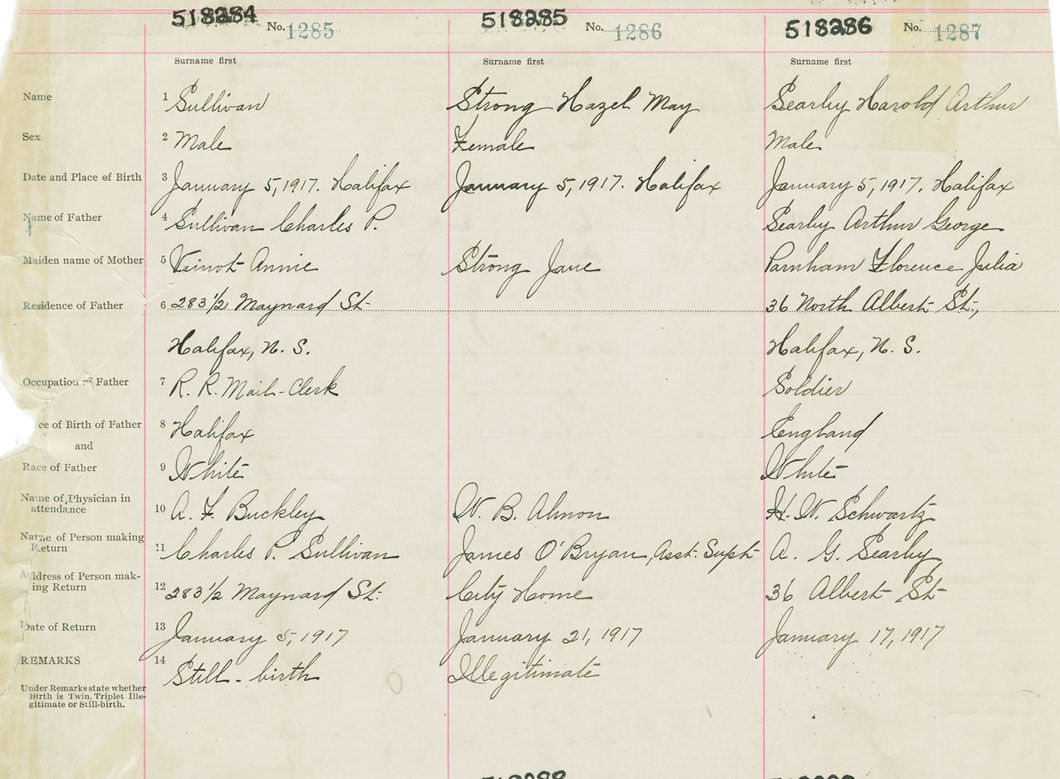 518284 No. 1285 518285 No. 1286 518286 No. 1287
Surname first Surname first Surname first
Name 1 Sullivan Strong Hazel May Searby Harold Arthur
Sex 2 Male Female Male
Date and Place of Birth 3 January 5, 1917. Halifax January 5, 1917. Halifax January 5, 1917, Halifax
Name of Father 4 Sullivan Charles P. Searby Arthur George
Maiden name of Mother 5 Veinot Annie Strong Jane Parnham Florence Julia
Residence of Father 6 283 1/2 Maynard St. 36 North Albert St.,
Halifax, N. S. Halifax, N. S.
Occupation of Father 7 R. R. Mail-Clerk Soldier
ce of Birth of Father 8 Halifax England
and
Race of Father 9 White White
Name of Physician in
attendance 10 A. F. Buckley W. B. Almon H. W. Schwartz
Name of Person making
Return 11 Charles P. Sullivan James O'Bryan, Asst. Supt. A. G. Searby
Address of Person mak-
ing Return 12 283 1/2 Maynard St. City Home 36 Albert St.
Date of Return 13 January 5, 1917 January 21, 1917 January 17, 1917
REMARKS 14 Still-birth Illegitimate
Under Remarks state whether
Birth is Twin, Triplet Ille-
gitimate or Still-birth.